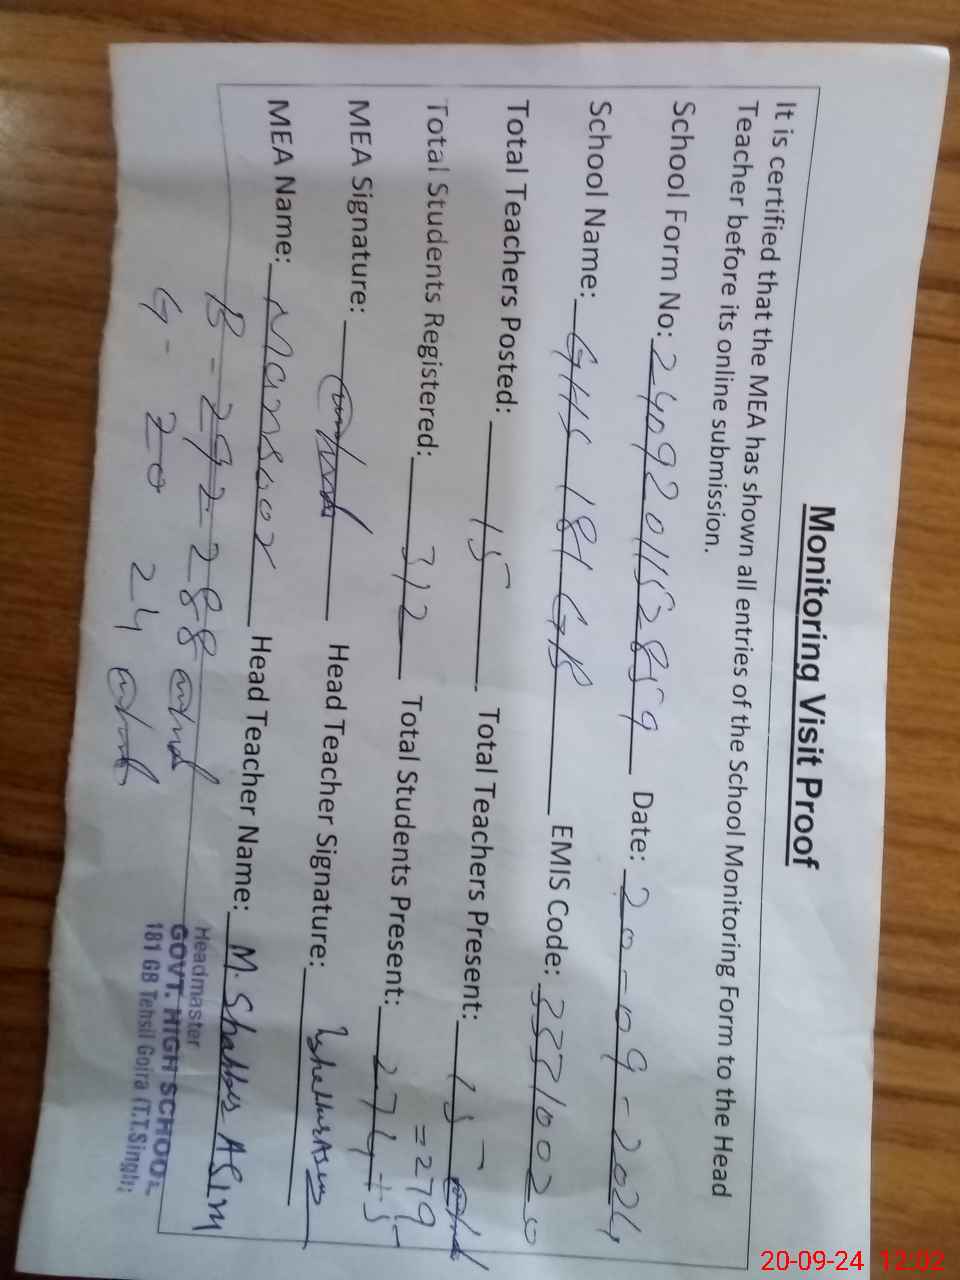 Monitoring Visit Proof
It is certified that the MEA has shown all entries of the School Monitoring Form to the Head
Teacher before its online submission.
School Form No: 2409201152859 Date: 20-09-2024
School Name: GHS 181 GB EMIS Code: 33310020
Total Teachers Posted: 15 Total Teachers Present: 15
Total Students Registered: 312 Total Students Present: 274+5
=279
MEA Signature: Head Teacher Signature:
MEA Name: Mansoor Head Teacher Name: M. Shabbir ASIM
B - 292 - 288
G - 20 24
Headmaster
GOVT. HIGH SCHOOL
181 GB Tehsil Gojra (T.T.Singh)
20-09-24 12:02